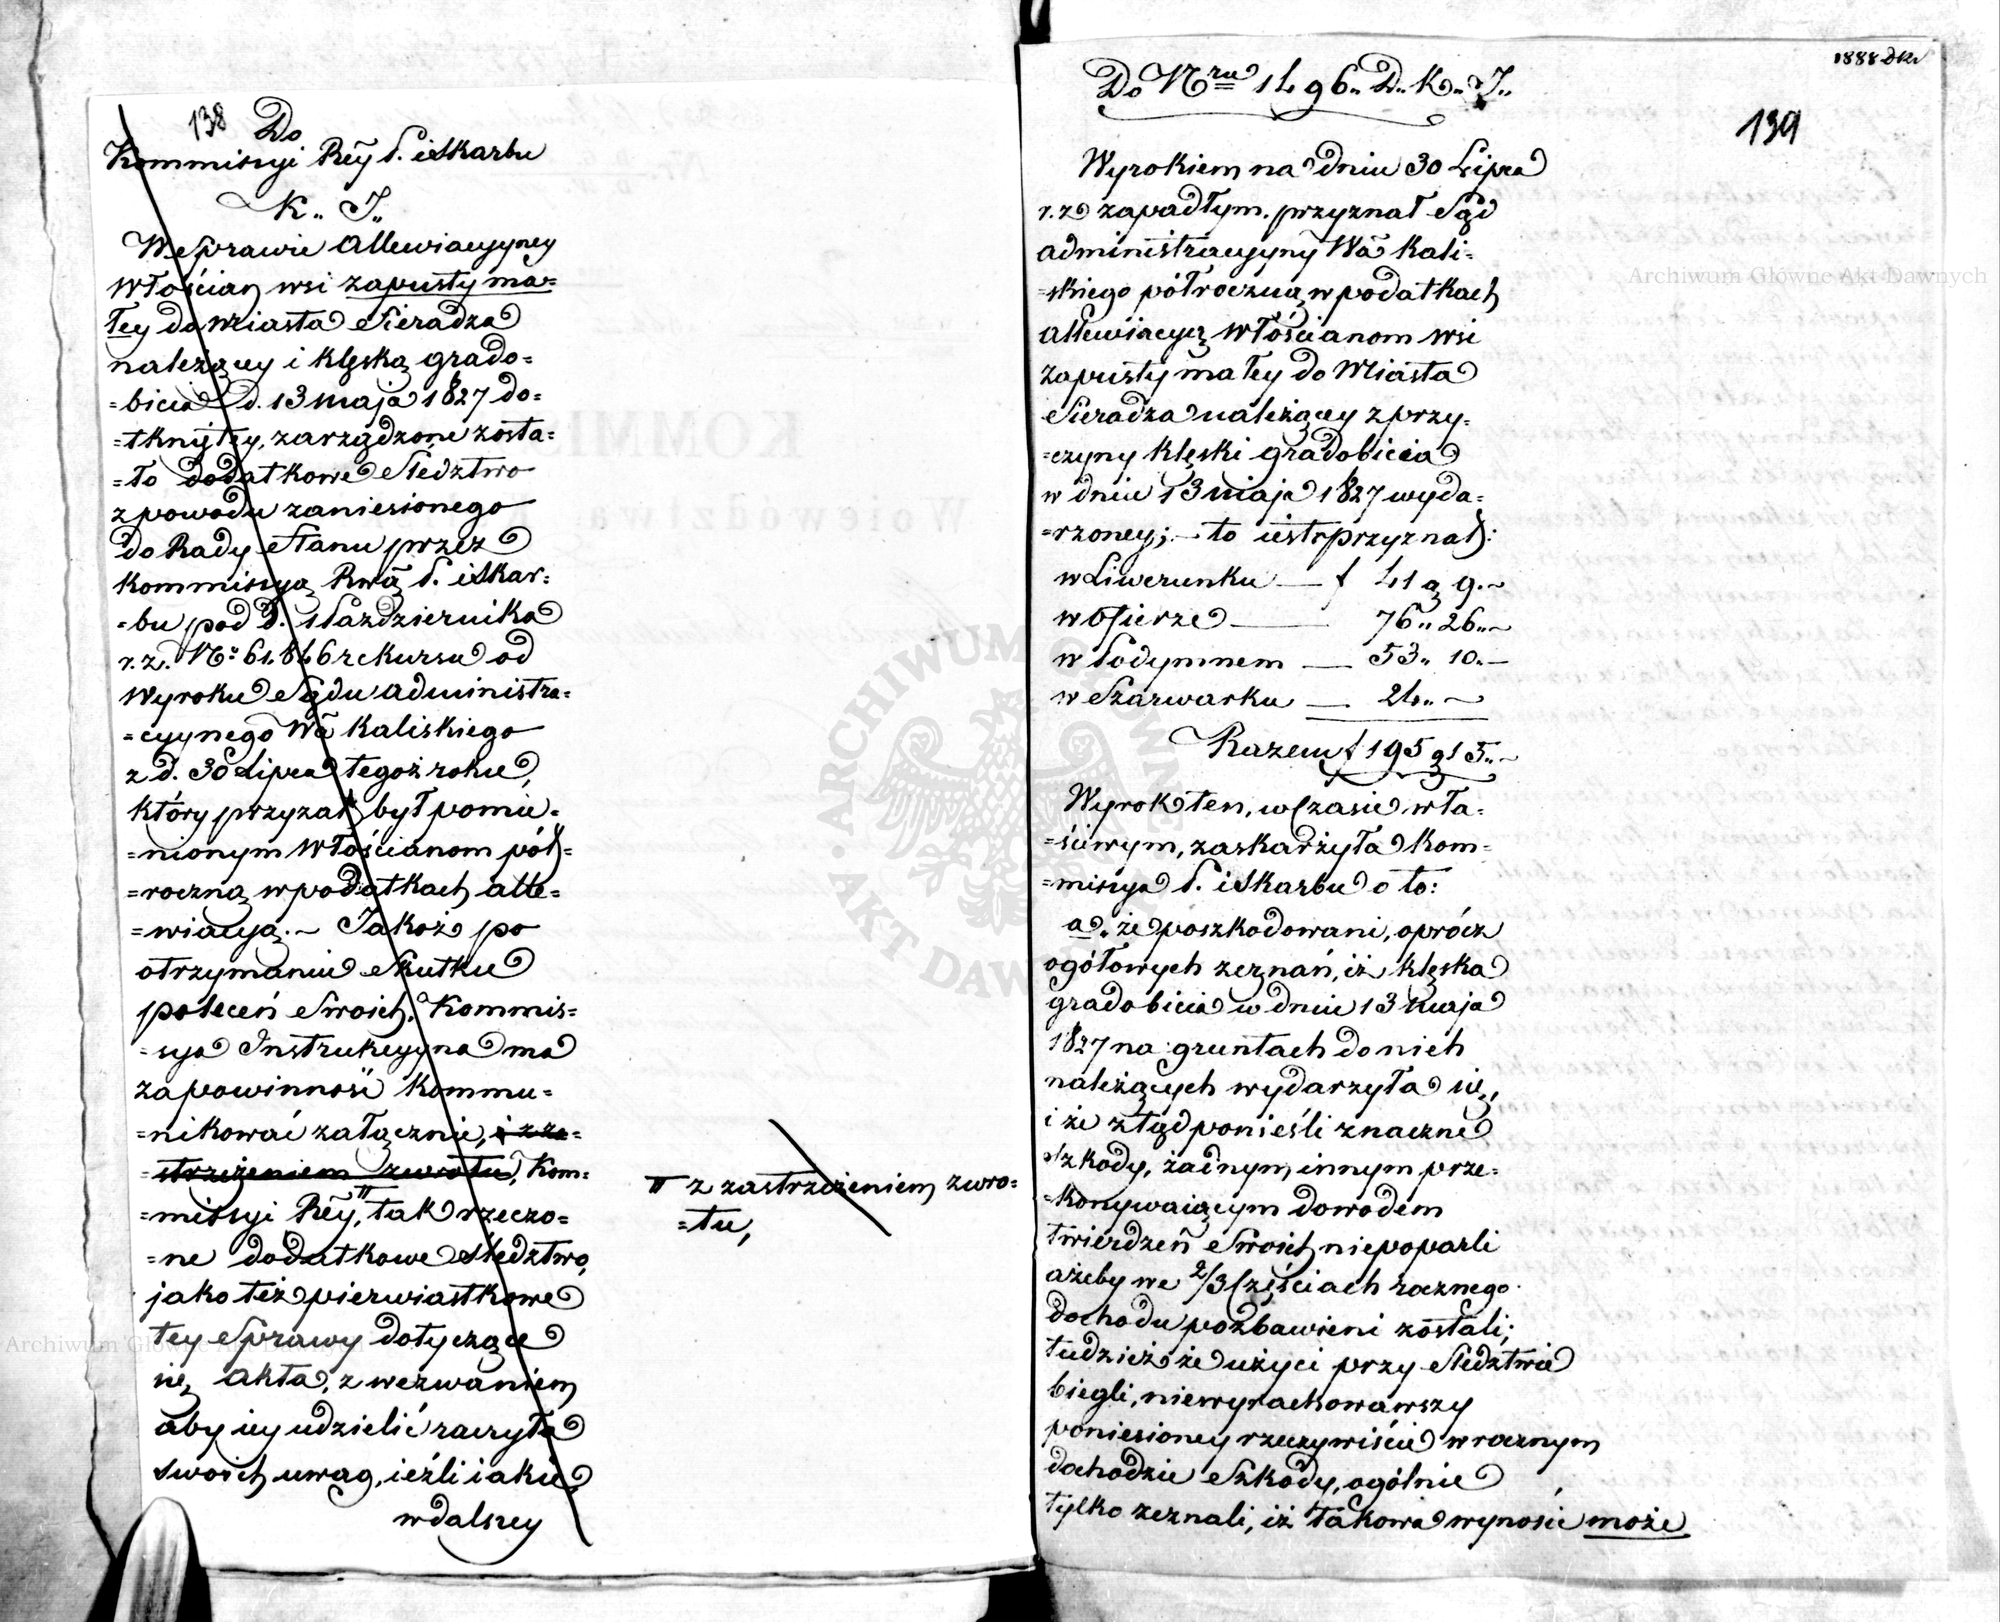 138
Do
Kommissyi Rz̃ey P. i Skarbu
K.. J..
We Sprawie Allewiacyyney
Włościan wsi Zapusty ma=
łey do Miasta Sieradza
należącey i klęską grado=
=bicia d. 13 Maja 1827 do=
=tkniętey, zarządzone zosta=
=ło dodatkowe Sledztwo
z powodu zaniesionego
do Rady Stanu przez
Kommissyą Rwã P. i Skar=
=bu pod d. 1 Października
r. z. No 61,846 rekursu od
Wyroku Sądu administra=
=cyynego Wã Kaliskiego
z d. 30 Lipca tegoż roku,
który przyzał był pomie=
=nionym Włościanom pół=
=roczną w podatkach alle=
=wiacyą. ~ Jakoż po
otrzymaniu Skutku
poleceń Swoich, Kommis=
=sya Instrukcyyna ma
za powinność kommu=
=nikować załącznie, i z za=
=strzeżeniem zwrotu, Kom=
=missyi Rz̃ey, tak rzeczo=
=ne dodatkowe Sledztwo,
jako też pierwiastkowe
tey Sprawy dotyczące
się Akta, z wezwaniem
aby iey udzielić raczyła
swoich uwag, ieźli iakie
w dalszey
π z zastrzeżeniem zwro=
=tu,
1888 DKJ
139
Do Nru 1496.. D.. K.. J..
Wyrokiem na dniu 30 Lipca
r. z. zapadłym, przyznał Sąd
administracyyny Wã Kali=
=skiego półroczną w podatkach
allewiacyą Włościanom wsi
Zapusty małey do Miasta
Sieradza należącey z przy=
=czyny klęski gradobicia
w dniu 13 Maja 1827 wyda=
=rzoney; ~ to iest przyznał:
w Liwerunku — f 41 g 9. ~
w Ofierze — 76.. 26.. ~
w Podymnem — 53.. 10. —
w Szarwarku — 24.. ~
Razem f 195 g 15.. ~
Wyrok ten, w Czasie wła=
=ściwym, zaskarżyła Kom=
=missya P. i Skarbu o to:
a. że poszkodowani, oprócz
ogółowych zeznań, iż klęska
gradobicia w dniu 13 Maja
1827 na gruntach do nich
należących wydarzyła się,
i że ztąd ponieśli znaczne
Szkody, żadnym innym prze=
=konywaiącym dowodem
twierdzeń Swoich niepoparli
ażeby we 2/3 Częściach rocznego
dochodu pozbawieni zostali;
tudzież że użyci przy Sledztwie
biegli, niewyrachowawszy
poniesioney rzeczywiście w rocznym
dochodzie Szkody, ogólnie
tylko zeznali, iż takowa wynosić może
Archiwum Główne Akt Dawnych
Archiwum Główne Akt Dawnych
ARCHIWUM GŁÓWNE AKT DAWNYCH